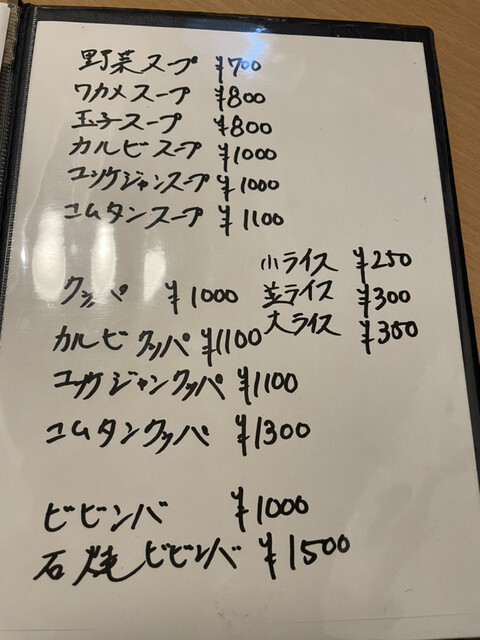 野菜スープ ¥700
ワカメスープ ¥800
玉子スープ ¥800
カルビスープ ¥1000
ユッケジャンスープ ¥1000
コムタンスープ ¥1100
小ライス ¥250
並ライス ¥300
大ライス ¥350
クッパ ¥1000
カルビクッパ ¥1100
ユッケジャンクッパ ¥1100
コムタンクッパ ¥1300
ビビンバ ¥1000
石焼ビビンバ ¥1500